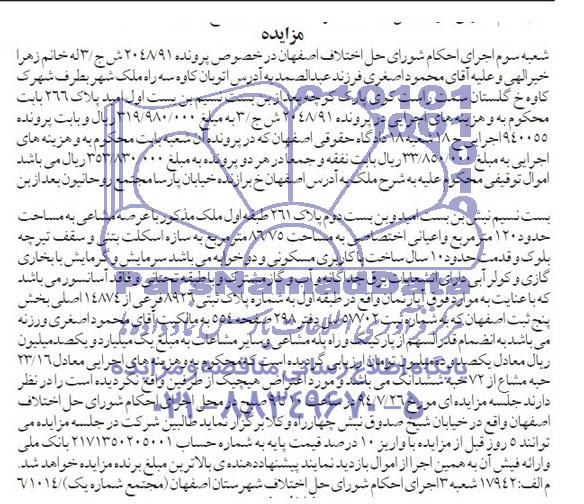 مزایده
شعبه سوم اجرای احکام شورای حل اختلاف اصفهان در خصوص پرونده ۲۰۴۸/۹۱ ش ج/۳ له خانم زهرا
خیرالهی و علیه آقای محمود اصغری فرزند عبدالصمد به آدرس اتوبان کاوه سه راه ملک شهر بطرف شهرک
کاوه خ گلستان سمت راست کوی پارک کوچه بعد از بن بست نسیم بن بست اول امید پلاک ۲۶۶ بابت
محکوم به و هزینه های اجرایی در پرونده ۲۰۴۸/۹۱ ش ج/۳ به مبلغ ۳۱۹/۹۸۰/۰۰۰ ریال و بابت پرونده
۹۴۰۰۵۵ اجرایی شعبه ۱۸ دادگاه حقوقی اصفهان که در پرونده آن شعبه بابت محکوم به و هزینه های
اجرایی به مبلغ ۳۳/۸۵۰/۰۰۰ ریال بابت نفقه و جمعا در هر دو پرونده به مبلغ ۳۵۳/۸۳۰/۰۰۰ ریال می باشد
اموال توقیفی محکوم علیه به شرح ملک به آدرس اصفهان خ برازنده خیابان پارسا مجتمع روحانیون بعد از بن
بست نسیم نبش بن بست امید و بن بست دوم پلاک ۲۶۱ طبقه اول ملک مذکور با عرصه مشاعی به مساحت
حدود ۱۲۰ متر مربع و اعیانی اختصاصی به مساحت ۸۶/۷۵ متر مربع به سازه اسکلت بتنی و سقف تیرچه
بلوک و قدمت حدود ۱۰ سال ساخت با کاربری مسکونی و دو خوابه می باشد سرمایش و گرمایش با بخاری
گازی و کولر آبی دارای انشعابات برق جداگانه و آب و گاز مشترک با طبقه تحتانی و فاقد آسانسور می باشد
که با عنایت به موارد فوق آپارتمان واقع در طبقه اول به شماره پلاک ثبتی ۸۹۲۲ فرعی از ۱۴۸۷۴ اصلی بخش
پنج ثبت اصفهان که به شماره ثبت ۱۵۷۷۰۲ در دفتر ۲۹۸ صفحه ۵۵۴ به مالکیت آقای محمود اصغری ورزنه
می باشد به انضمام قدرالسهم از پارکینگ و راه پله مشاعی و سایر مشاعات به مبلغ یک میلیارد و یکصد میلیون
ریال معادل یکصد و ده میلیون تومان ارزیابی گردیده است که محکوم به و هزینه های اجرایی معادل ۲۳/۱۶
حبه مشاع از ۷۲ حبه ششدانگ می باشد و مورد اعتراض هیچیک از طرفین واقع نگردیده است را در نظر
دارند جلسه مزایده ای مورخ ۹۴/۷/۲۶ در ساعت ۱۰ تا ۹ صبح در محل اجرای احکام شورای حل اختلاف
اصفهان واقع در خیابان شیخ صدوق نبش چهارراه وکلا برگزار نماید طالبین شرکت در جلسه مزایده می
توانند ۵ روز قبل از مزایده با واریز ۱۰ درصد قیمت پایه به شماره حساب ۲۱۷۱۳۵۰۲۰۵۰۰۱ بانک ملی
و ارائه فیش آن به همین اجرا از اموال بازدید نمایند پیشنهاد دهنده ی بالاترین مبلغ برنده مزایده خواهد شد.
م الف: ۱۷۹۴۲ شعبه ۳ اجرای احکام شورای حل اختلاف شهرستان اصفهان (مجتمع شماره یک) /۶/۱۰۱۴
ParsNamadData
پایگاه اطلاع رسانی مناقصه و مزایده
۰۲۱-۸۸۳۴۹۶۷۰-۵